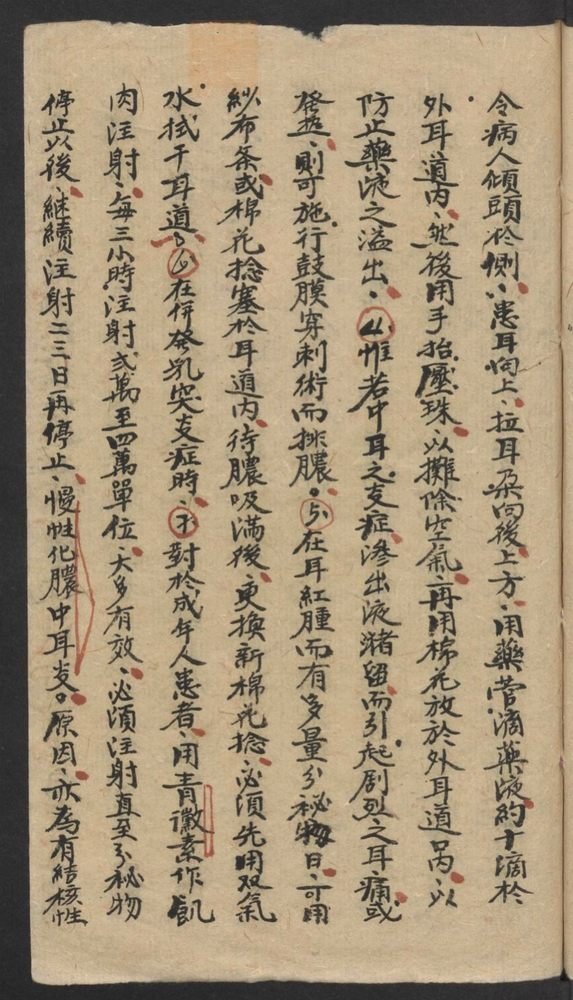 令病人傾頭於側、患耳向上、拉耳朶向後上方、用藥管滴藥液約十滴於
外耳道內、然後用手抬壓珠、以攤除空氣、再用棉花放於外耳道口內、以
防止藥液之溢出、4、惟若中耳之支症、滲出液潴留而引起剧烈之耳痛或
發热、則可施行鼓膜穿刺術而排膿。5、在耳紅腫而有多量分秘物日、可用
紗布条或棉花捻塞於耳道內、待膿吸滿後、更換新棉花捻、必須先用双氧
水拭干耳道、6、在併發乳突支症時、7、對於成年人患者、用青黴素作飢
肉注射、每三小時注射弍萬至四萬單位、大多有效、必須注射直至分秘物
停止以後、継續注射二三日再停止、慢性化膿中耳炎。原因、亦為有結核性